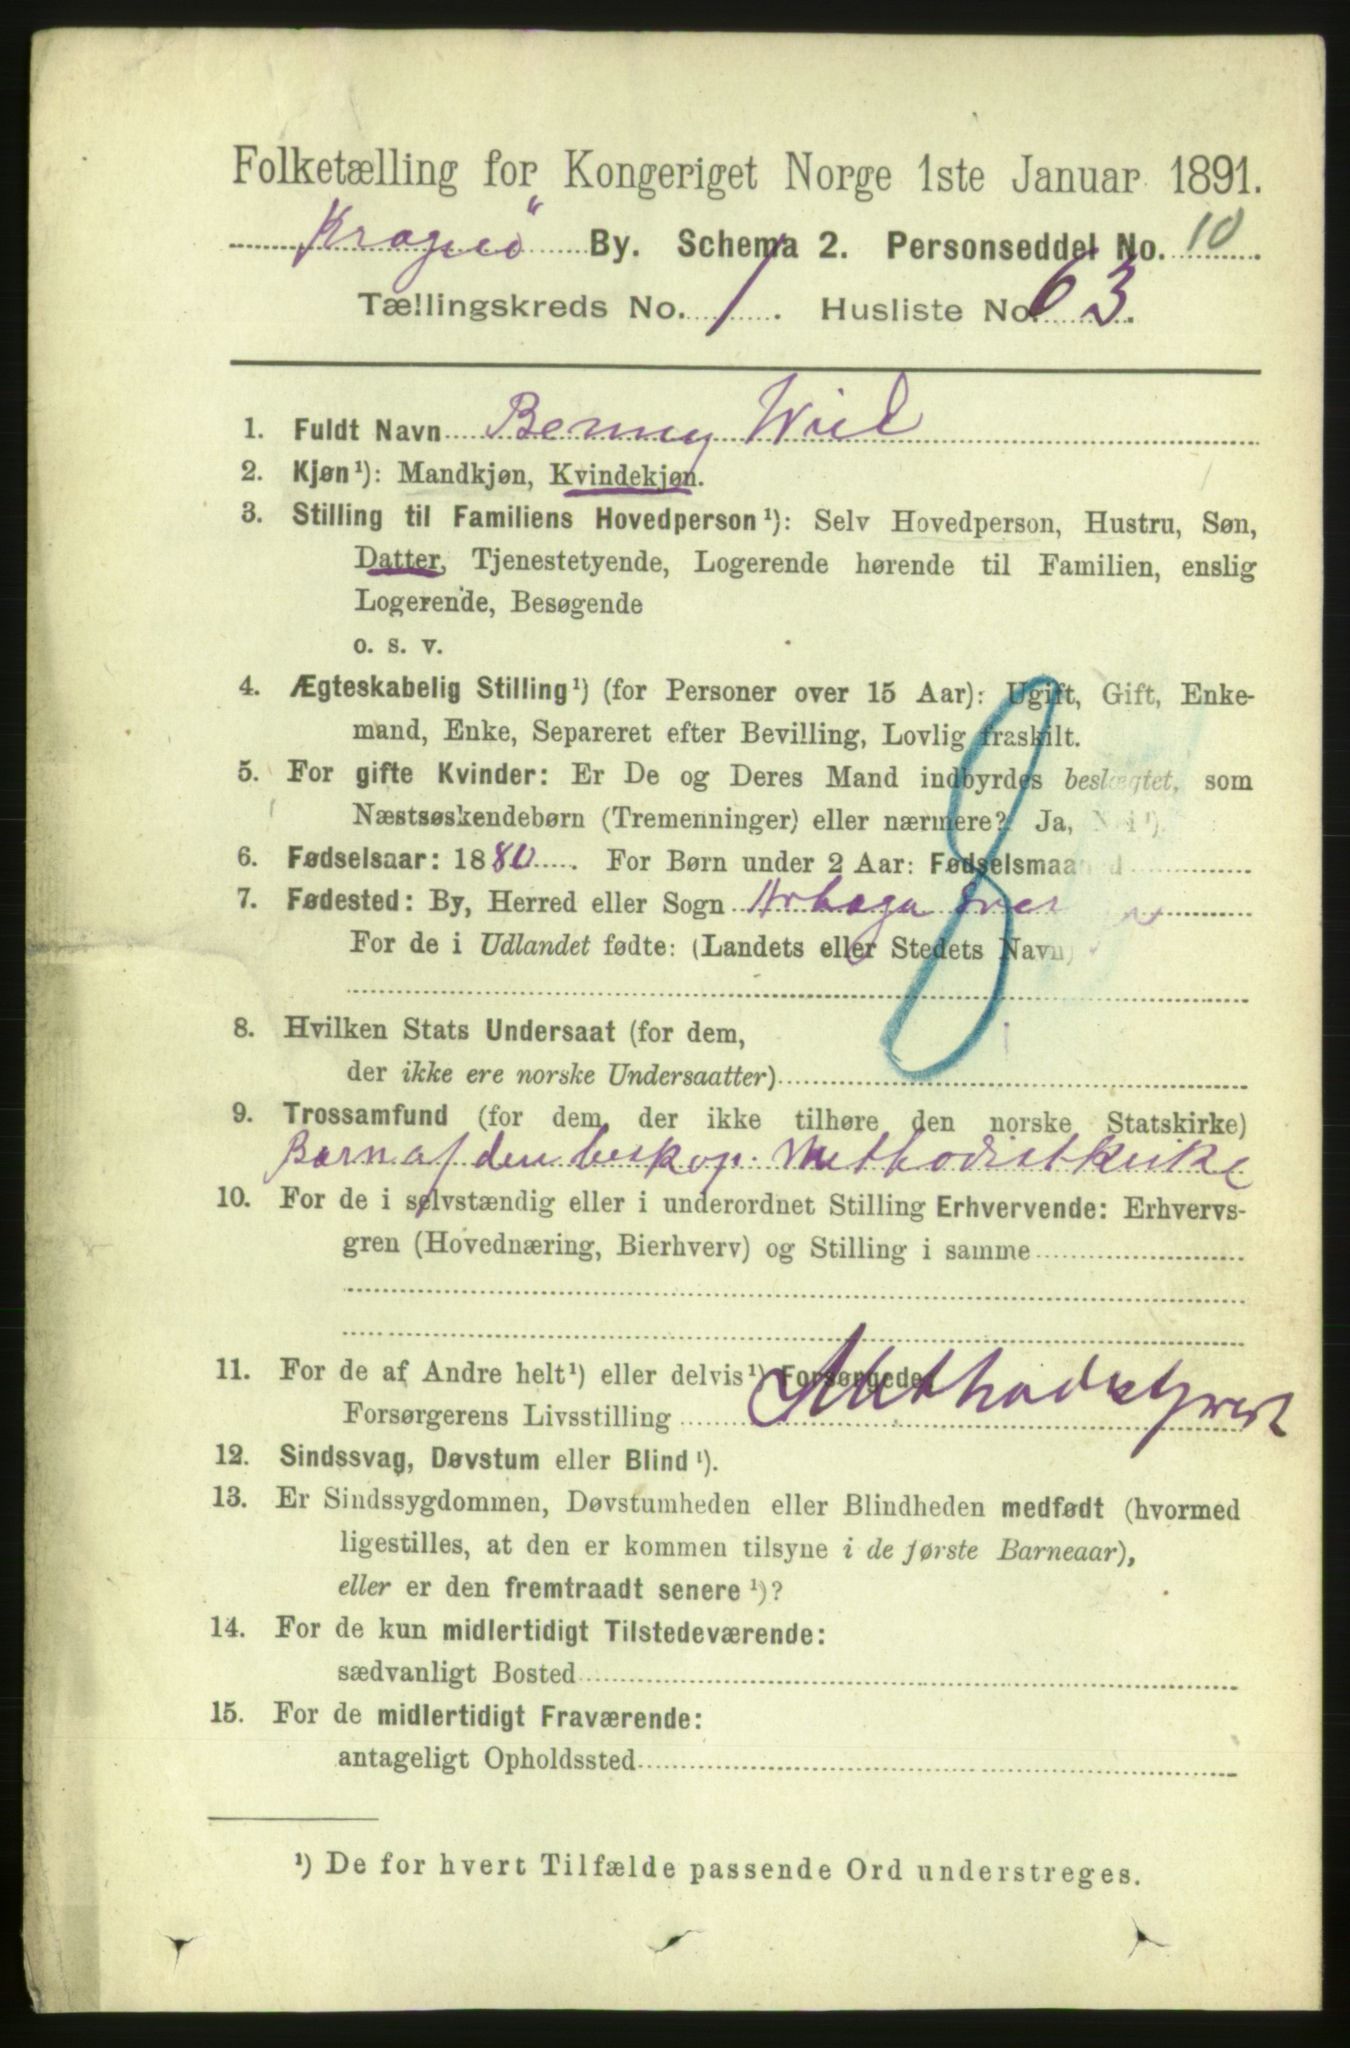 Folketælling for Kongeriget Norge 1ste Januar 1891.
Kragerö By. Schema 2. Personseddel No. 10.
Tællingskreds No. 1. Husliste No. 63.
1. Fuldt Navn Benny Wiel
2. Kjøn¹): Mandkjøn, Kvindekjøn.
3. Stilling til Familiens Hovedperson¹): Selv Hovedperson, Hustru, Søn,
Datter, Tjenestetyende, Logerende hørende til Familien, enslig
Logerende, Besøgende
o. s. v.
4. Ægteskabelig Stilling¹) (for Personer over 15 Aar): Ugift, Gift, Enke-
mand, Enke, Separeret efter Bevilling, Lovlig fraskilt.
5. For gifte Kvinder: Er De og Deres Mand indbyrdes beslægtet, som
Næstsøskendebørn (Tremenninger) eller nærmere? Ja, Nei¹).
6. Fødselsaar: 1880. For Børn under 2 Aar: Fødselsmaaned
7. Fødested: By, Herred eller Sogn Arboga
For de i Udlandet fødte: (Landets eller Stedets Navn)
8. Hvilken Stats Undersaat (for dem,
der ikke ere norske Undersaatter)
9. Trossamfund (for dem, der ikke tilhøre den norske Statskirke)
Barn af den biskop. Methodistkirke
10. For de i selvstændig eller i underordnet Stilling Erhvervende: Erhvervs-
gren (Hovednæring, Bierhverv) og Stilling i samme
11. For de af Andre helt¹) eller delvis¹) Forsørgede:
Forsørgerens Livsstilling
12. Sindssvag, Døvstum eller Blind¹).
13. Er Sindssygdommen, Døvstumheden eller Blindheden medfødt (hvormed
ligestilles, at den er kommen tilsyne i de første Barneaar),
eller er den fremtraadt senere¹)?
14. For de kun midlertidigt Tilstedeværende:
sædvanligt Bosted
15. For de midlertidigt Fraværende:
antageligt Opholdssted
¹) De for hvert Tilfælde passende Ord understreges.